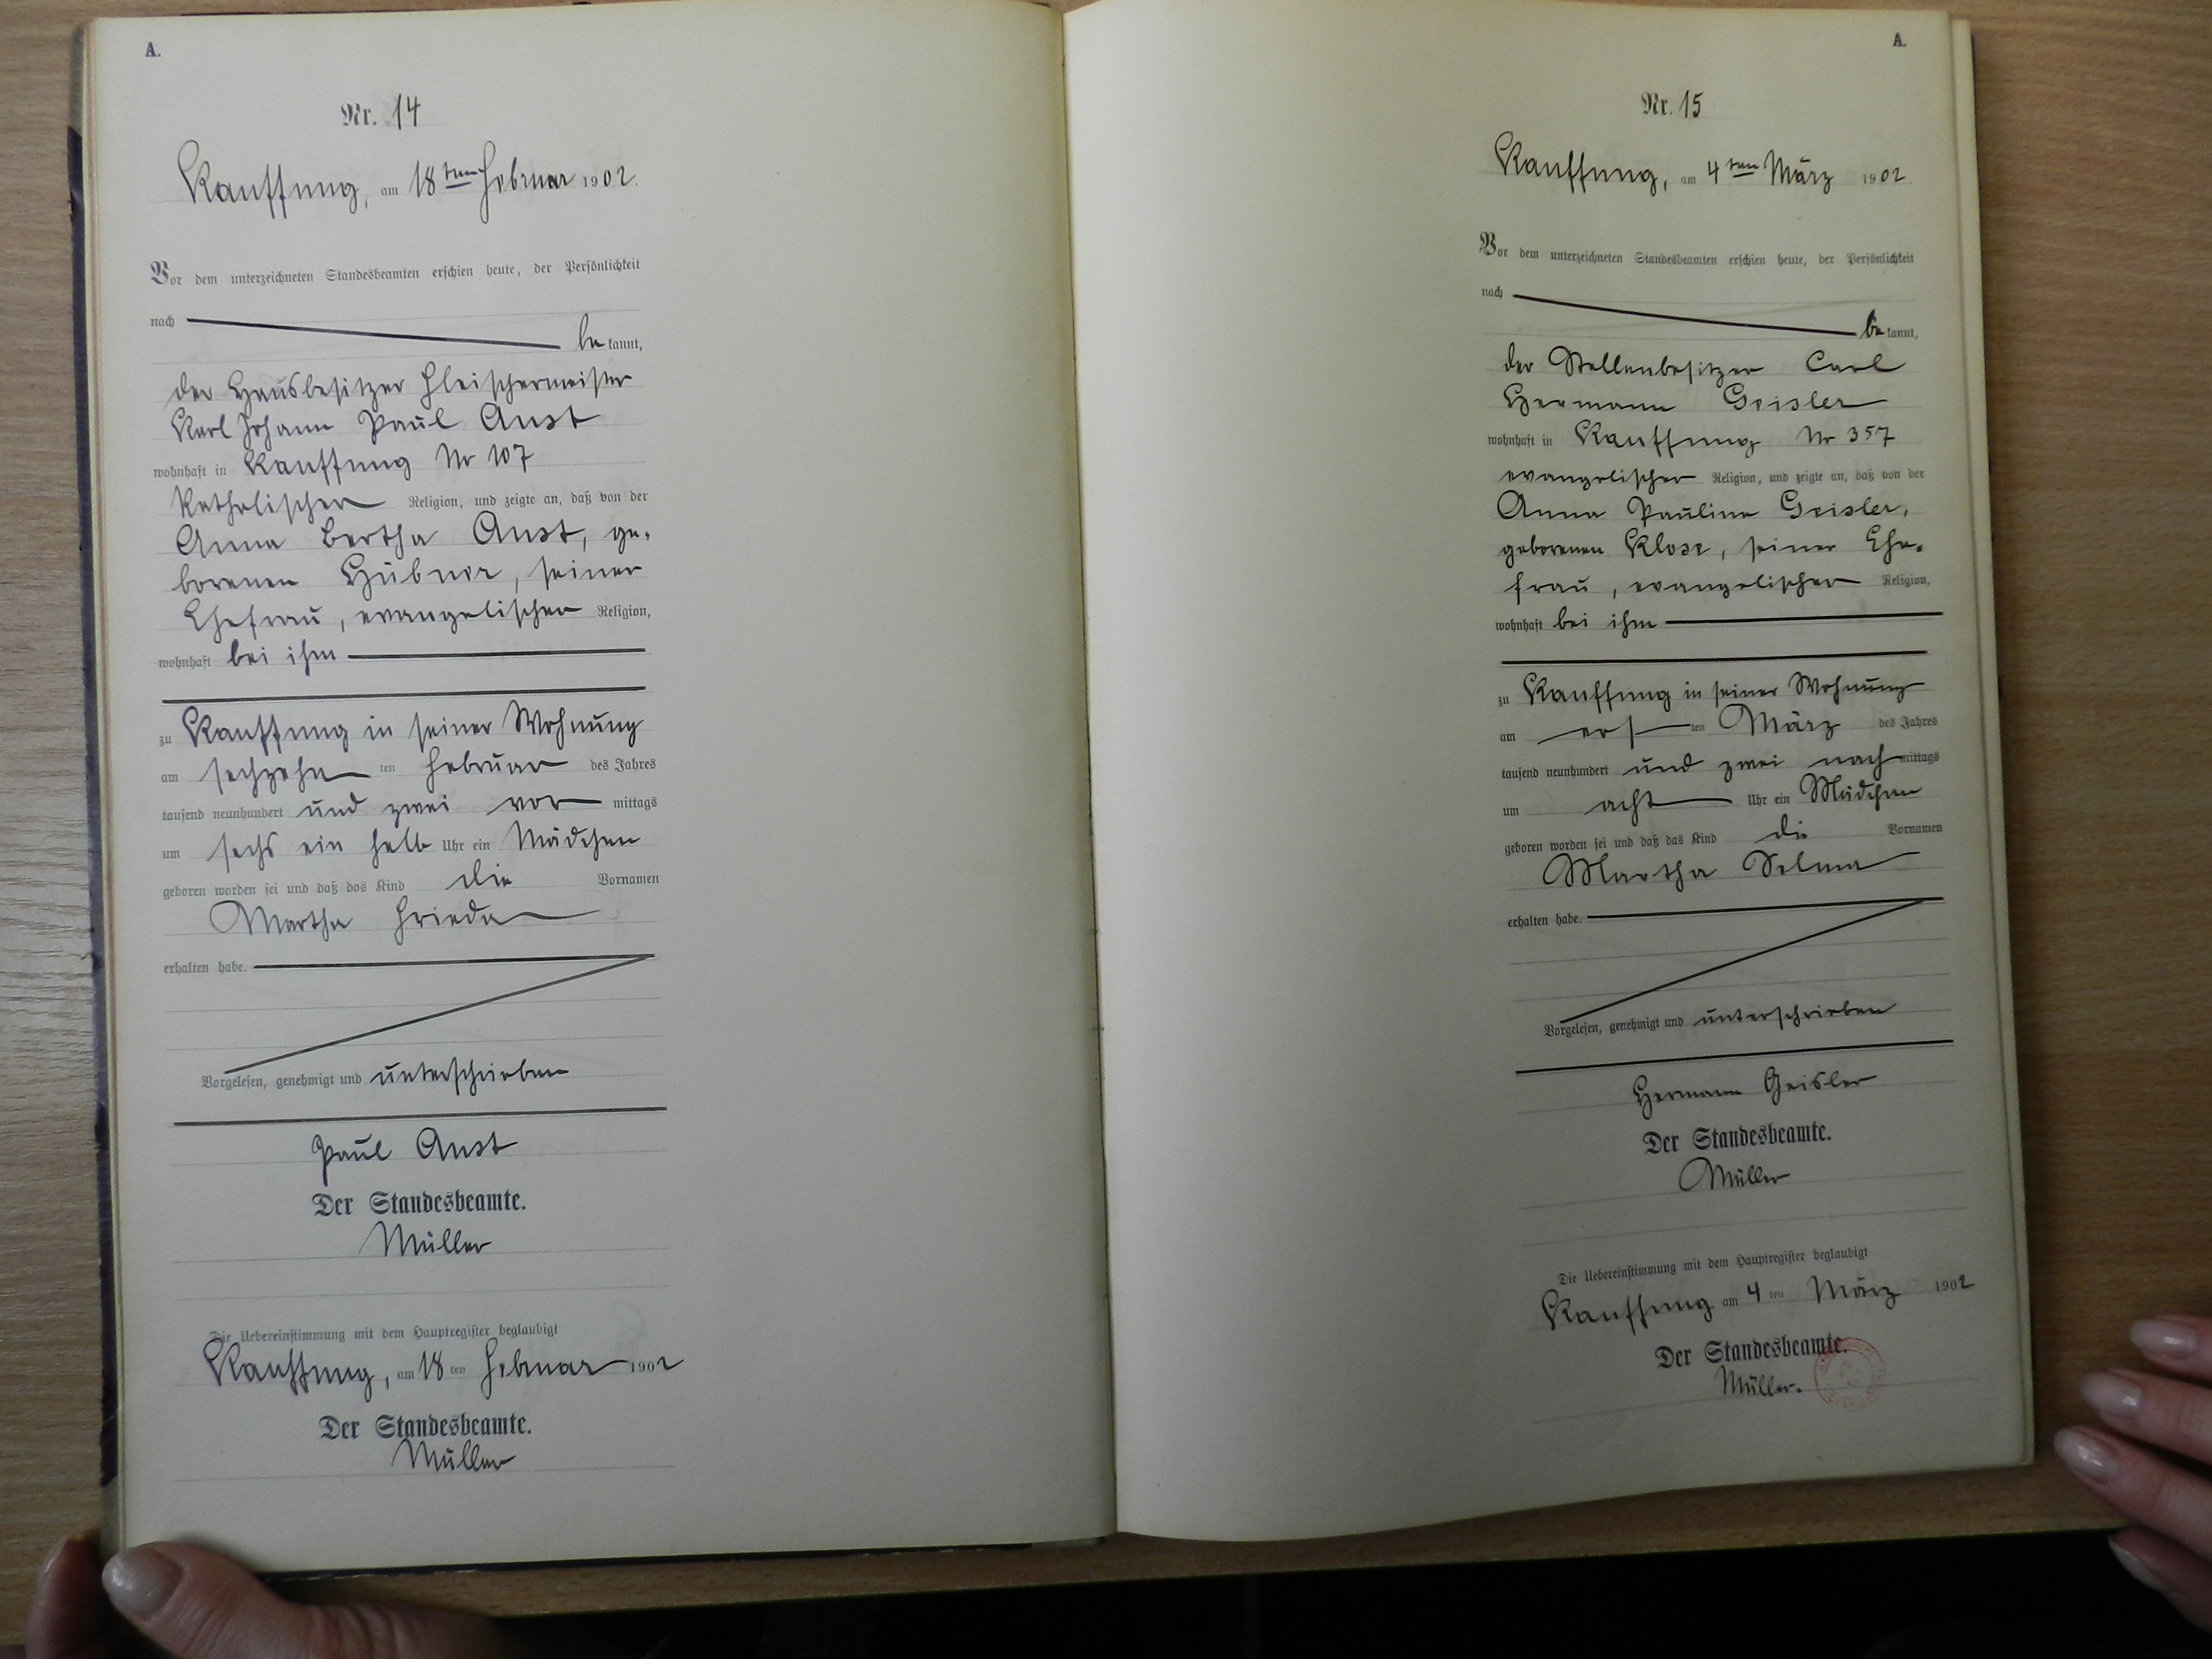 A.
Nr. 14
Kauffung, am 18ten Februar 1902.
Vor dem unterzeichneten Standesbeamten erschien heute, der Persönlichkeit
nach
bekannt,
der Hausbesitzer Fleischermeister
Karl Johann Paul Aust
wohnhaft in Kauffung Nr 107
katholischer Religion, und zeigte an, daß von der
Anna Bertha Aust, ge-
borenen Hübner, seiner
Ehefrau, evangelischer Religion,
wohnhaft bei ihm
zu Kauffung in seiner Wohnung
am sechzehn ten Februar des Jahres
tausend neunhundert und zwei vormittags
um sechs ein halb Uhr ein Mädchen
geboren worden sei und daß das Kind die Vornamen
Martha Frieda
erhalten habe.
Vorgelesen, genehmigt und unterschrieben
Paul Aust
Der Standesbeamte.
Müller
Die Uebereinstimmung mit dem Hauptregister beglaubigt
Kauffung, am 18 ten Februar 1902
Der Standesbeamte.
Müller
A.
Nr. 15
Kauffung, am 4ten März 1902.
Vor dem unterzeichneten Standesbeamten erschien heute, der Persönlichkeit
nach
bekannt,
der Stellenbesitzer Carl
Hermann Geisler
wohnhaft in Kauffung Nr 357
evangelischer Religion, und zeigte an, daß von der
Anna Pauline Geisler,
geborenen Klose, seiner Ehe-
frau, evangelischer Religion,
wohnhaft bei ihm
zu Kauffung in seiner Wohnung
am ers ten März des Jahres
tausend neunhundert und zwei nachmittags
um acht Uhr ein Mädchen
geboren worden sei und daß das Kind die Vornamen
Martha Selma
erhalten habe.
Vorgelesen, genehmigt und unterschrieben
Hermann Geisler
Der Standesbeamte.
Müller
Die Uebereinstimmung mit dem Hauptregister beglaubigt
Kauffung am 4 ten März 1902
Der Standesbeamte.
Müller.